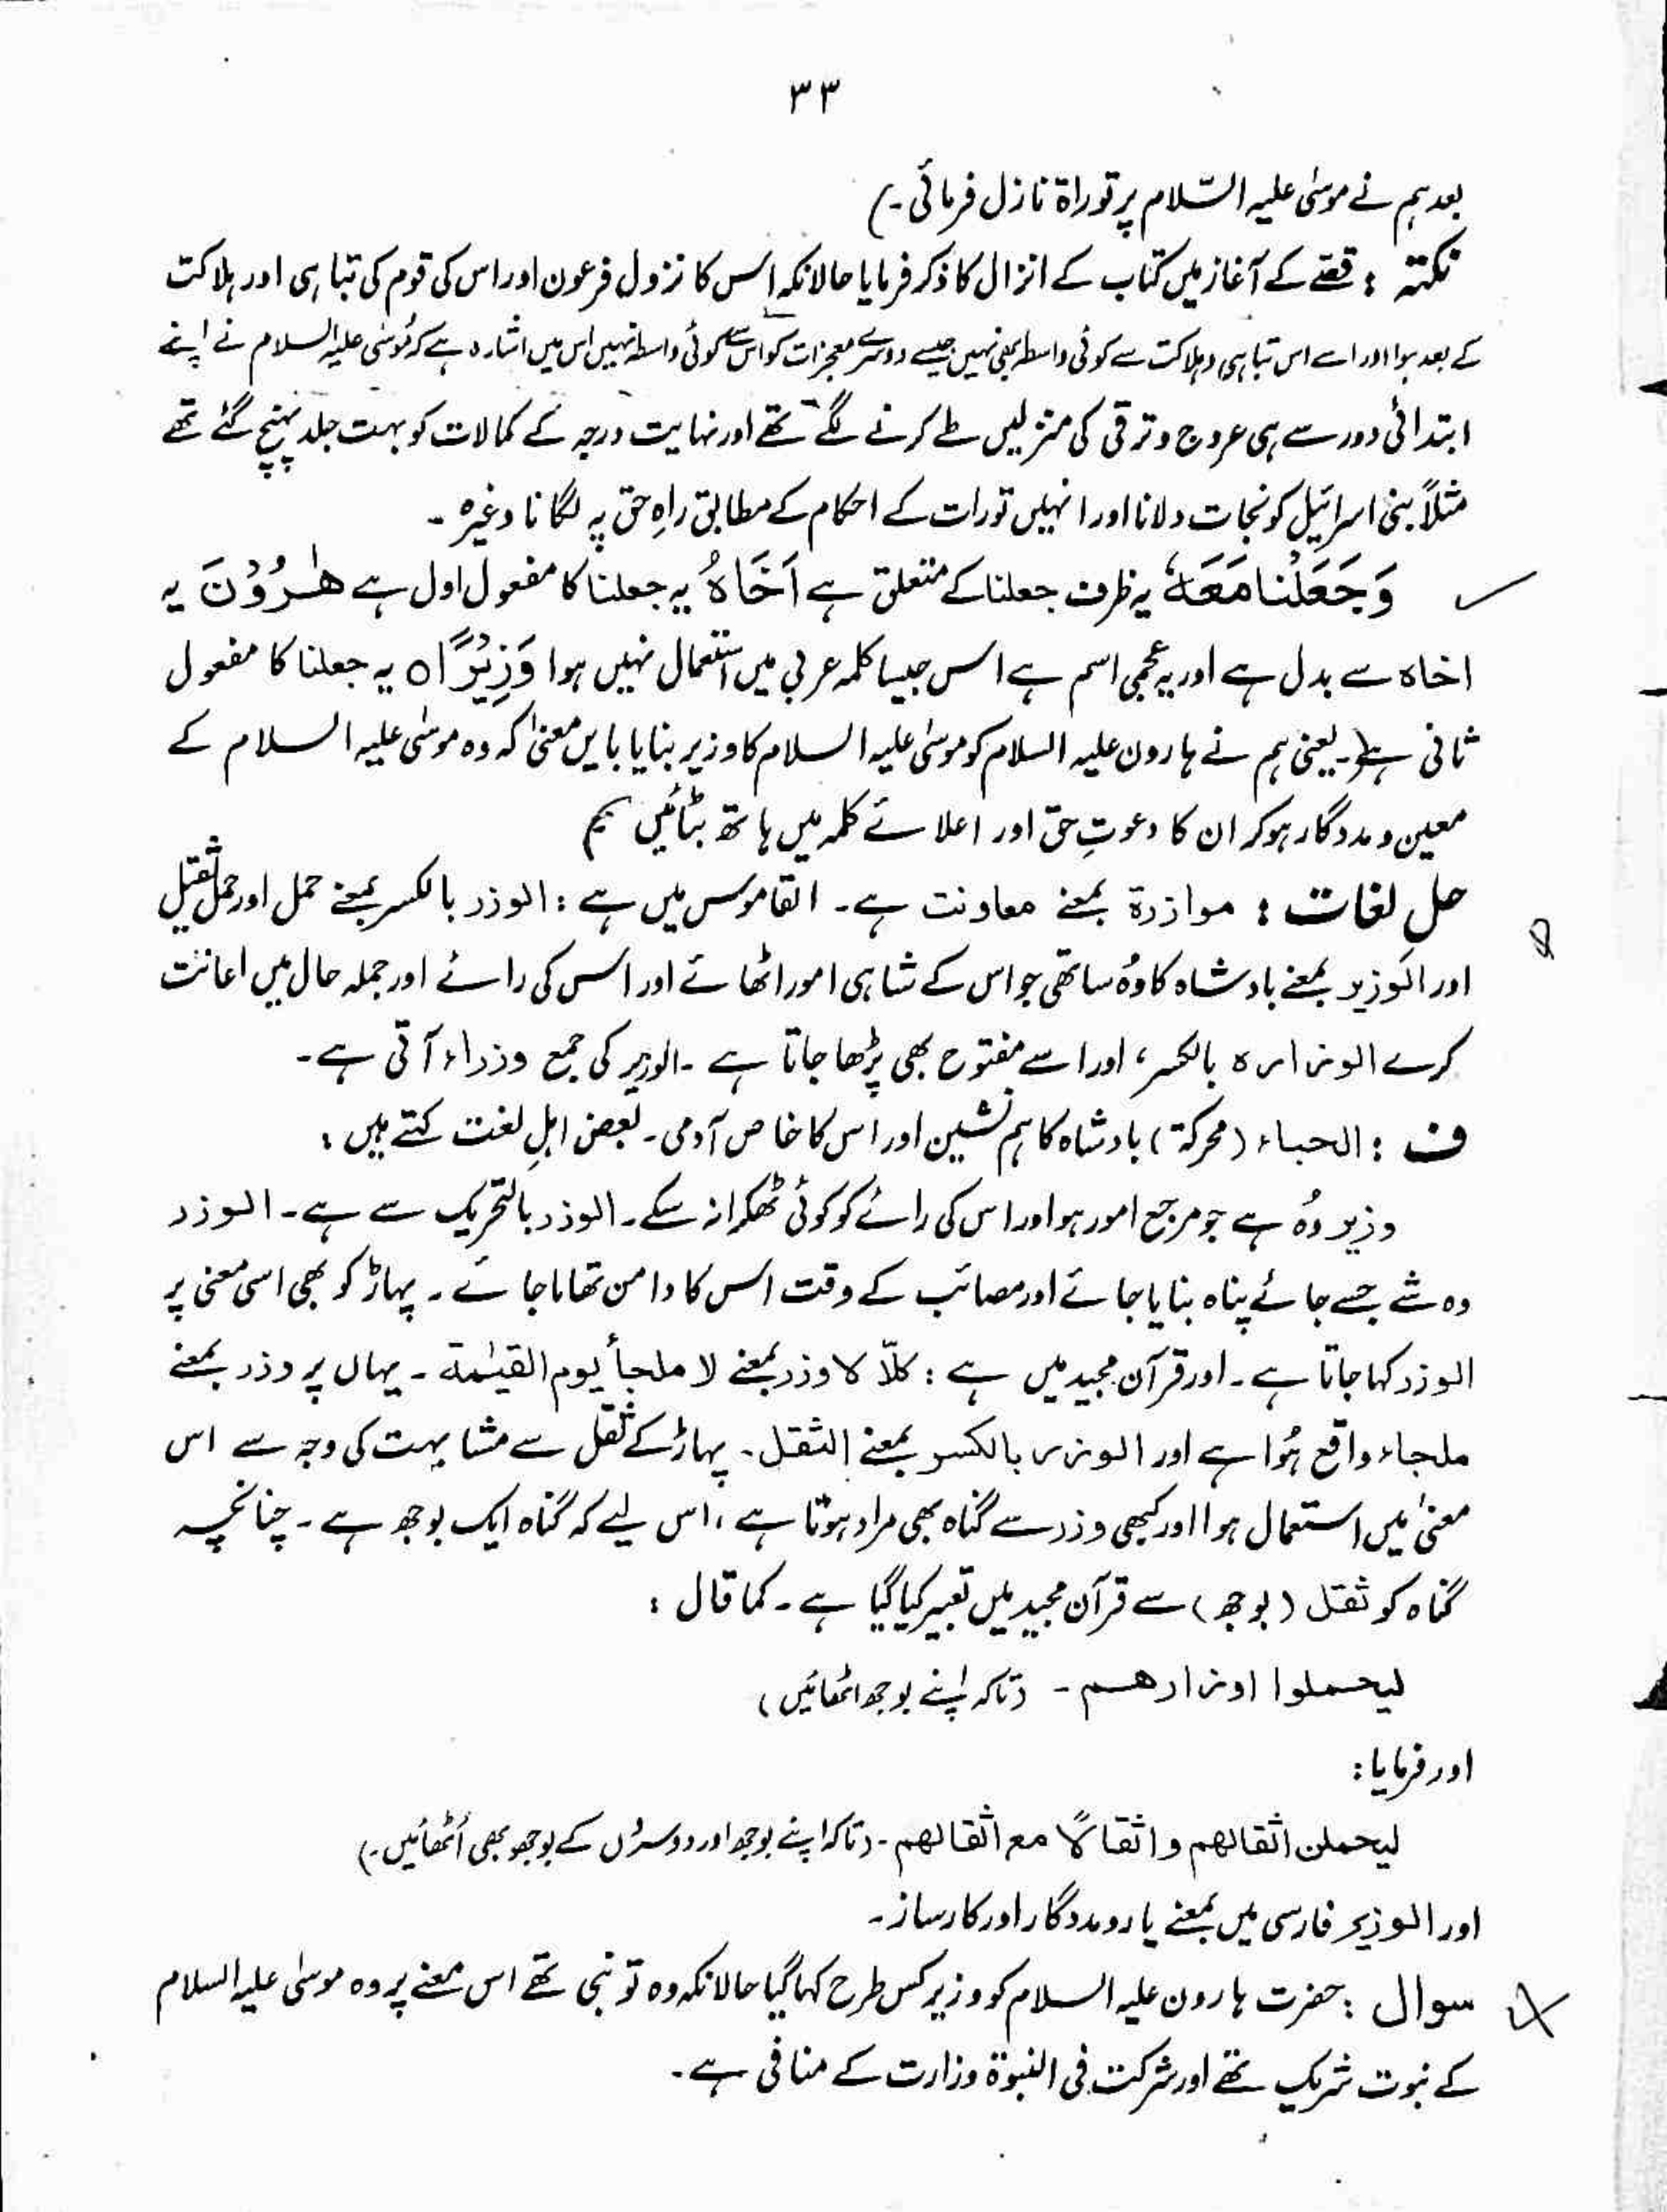 ۳۳
بعد ہم نے موسیٰ علیہ السّلام پر توراۃ نازل فرمائی۔)
نکتہ : قصّے کے آغاز میں کتاب کے انزال کا ذکر فرمایا حالانکہ اس کا نزول فرعون اور اس کی قوم کی تباہی اور ہلاکت
کے بعد ہوا اور اسے اس تباہی و ہلاکت سے کوئی واسطہ بھی نہیں جیسے دوسرے معجزات کو اس سے کوئی واسطہ نہیں اس میں اشارہ ہے کہ موسٰی علیہ السلام نے اپنے
ابتدائی دور سے ہی عروج و ترقی کی منزلیں طے کرنے لگے تھے اور نہایت درجہ کے کمالات کو بہت جلد پہنچ گئے تھے
مثلاً بنی اسرائیل کو نجات دلانا اور انہیں تورات کے احکام کے مطابق راہِ حق پہ لگانا وغیرہ ۔
وَجَعَلْنَا مَعَهٗ یہ ظرف جعلنا کے متعلق ہے اَخَاهُ یہ جعلنا کا مفعول اول ہے هٰرُوْنَ یہ
اخاہ سے بدل ہے اور یہ عجمی اسم ہے اس جیسا کلمہ عربی میں استعمال نہیں ہوا وَزِيْرًا ○ یہ جعلنا کا مفعول
ثانی ہے۔ یعنی ہم نے ہارون علیہ السلام کو موسٰی علیہ السلام کا وزیر بنایا بایں معنیٰ کہ وہ موسٰی علیہ السلام کے
معین و مددگار ہو کر ان کا دعوتِ حق اور اعلائے کلمہ میں ہاتھ بٹائیں
حل لغات : موازرۃ بمعنے معاونت ہے۔ القاموس میں ہے : الوزر بالکسر بمعنے حمل اور حمل ثقیل
اور الوزیر بمعنے بادشاہ کا وُہ ساتھی جو اس کے شاہی امور اٹھائے اور اس کی رائے اور جملہ حال میں اعانت
کرے الوزارہ بالکسر، اور اسے مفتوح بھی پڑھا جاتا ہے ۔ الوزیر کی جمع وزراء آتی ہے۔
ف : الحباء (محرکۃ) بادشاہ کا ہم نشین اور اس کا خاص آدمی۔ بعض اہلِ لغت کہتے ہیں :
وزیر وُہ ہے جو مرجع امور ہو اور اس کی رائے کو کوئی ٹھکرا نہ سکے۔ الوزر بالتحریک سے ہے۔ الوزر
وہ شے جسے جائے پناہ بنایا جائے اور مصائب کے وقت اس کا دامن تھاما جائے۔ پہاڑ کو بھی اسی معنی پر
الوزر کہا جاتا ہے۔ اور قرآن مجید میں ہے : کلّا لا وزر بمعنے لا ملجأ یوم القیٰمۃ ۔ یہاں پر وزر بمعنے
ملجاء واقع ہُوا ہے اور الوزر بالکسر بمعنے الثقل ۔ پہاڑ کے ثقل سے مشابہت کی وجہ سے اس
معنیٰ میں استعمال ہوا اور کبھی وزر سے گناہ بھی مراد ہوتا ہے ، اس لیے کہ گناہ ایک بوجھ ہے ۔ چنانچہ
گناہ کو ثقل (بوجھ) سے قرآن مجید میں تعبیر کیا گیا ہے ۔ کما قال :
لیحملوا اوزارھم ۔ (تاکہ اپنے بوجھ اٹھائیں)
اور فرمایا :
لیحملن اثقالھم و اثقالًا مع اثقالھم ۔ (تاکہ اپنے بوجھ اور دوسروں کے بوجھ بھی اُٹھائیں۔)
اور الوزیر فارسی میں بمعنے یار و مددگار اور کارساز۔
سوال : حضرت ہارون علیہ السلام کو وزیر کس طرح کہا گیا حالانکہ وہ تو نبی تھے اس معنے پر وہ موسٰی علیہ السلام
کے نبوت شریک تھے اور شرکت فی النبوۃ وزارت کے منافی ہے۔